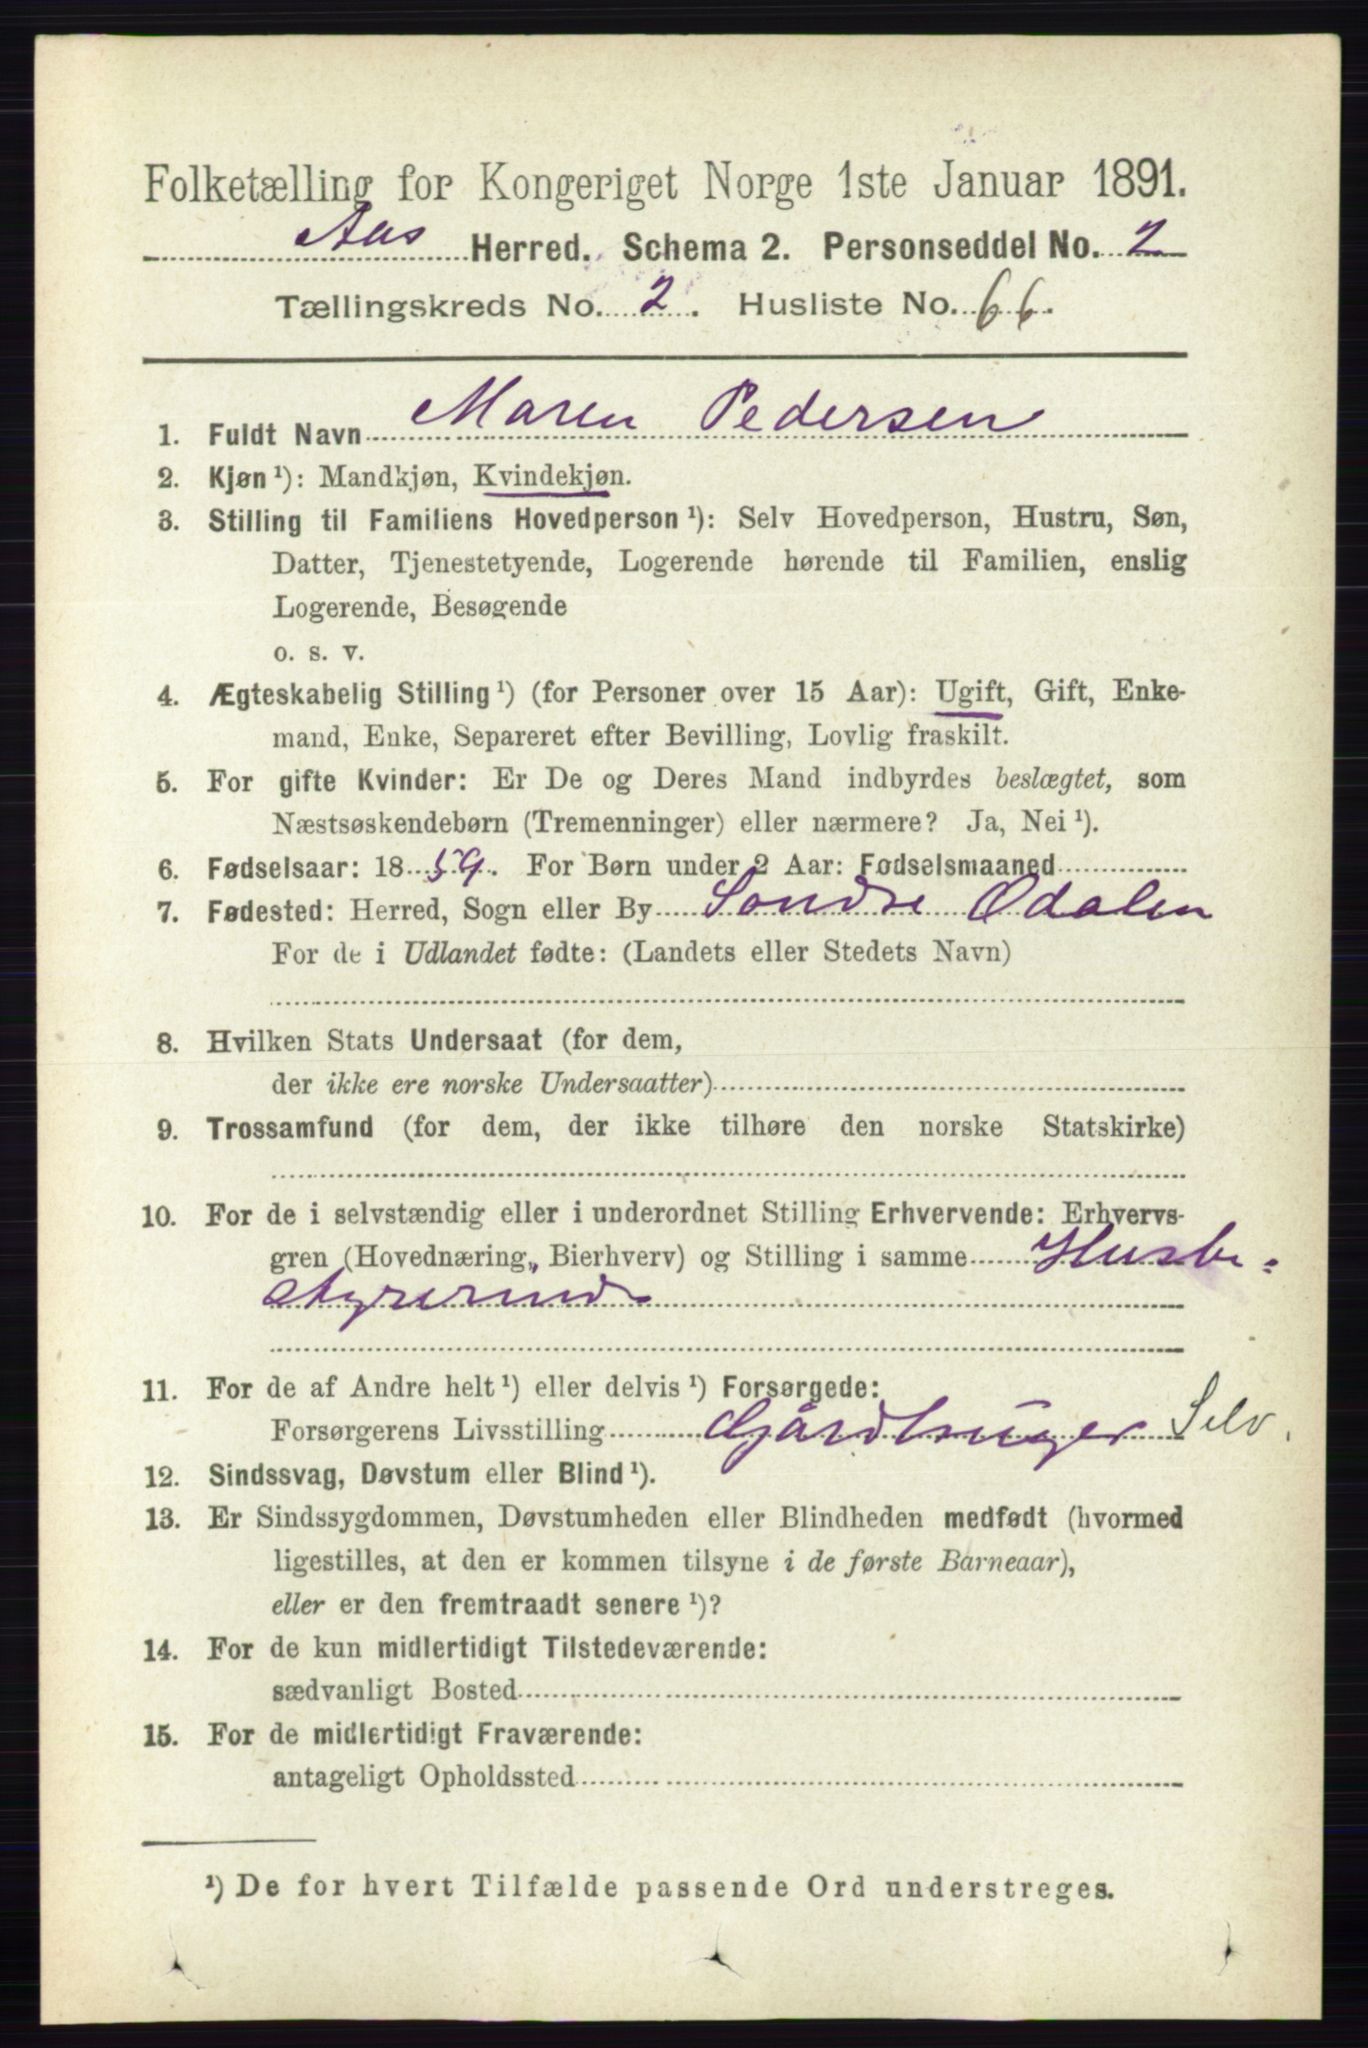 Folketælling for Kongeriget Norge 1ste Januar 1891.
Aas Herred. Schema 2. Personseddel No. 2
Tællingskreds No. 2. Husliste No. 66.
1. Fuldt Navn Maren Pedersen
2. Kjøn ¹): Mandkjøn, Kvindekjøn.
3. Stilling til Familiens Hovedperson ¹): Selv Hovedperson, Hustru, Søn,
Datter, Tjenestetyende, Logerende hørende til Familien, enslig
Logerende, Besøgende
o. s. v.
4. Ægteskabelig Stilling ¹) (for Personer over 15 Aar): Ugift, Gift, Enke-
mand, Enke, Separeret efter Bevilling, Lovlig fraskilt.
5. For gifte Kvinder: Er De og Deres Mand indbyrdes beslægtet, som
Næstsøskendebørn (Tremenninger) eller nærmere? Ja, Nei ¹).
6. Fødselsaar: 1859. For Børn under 2 Aar: Fødselsmaaned
7. Fødested: Herred, Sogn eller By Søndre Odalen
For de i Udlandet fødte: (Landets eller Stedets Navn)
8. Hvilken Stats Undersaat (for dem,
der ikke ere norske Undersaatter)
9. Trossamfund (for dem, der ikke tilhøre den norske Statskirke)
10. For de i selvstændig eller i underordnet Stilling Erhvervende: Erhvervs-
gren (Hovednæring, Bierhverv) og Stilling i samme Husbe-
styrerinde
11. For de af Andre helt ¹) eller delvis ¹) Forsørgede:
Forsørgerens Livsstilling Gårdbruger Selv.
12. Sindssvag, Døvstum eller Blind ¹).
13. Er Sindssygdommen, Døvstumheden eller Blindheden medfødt (hvormed
ligestilles, at den er kommen tilsyne i de første Barneaar),
eller er den fremtraadt senere ¹)?
14. For de kun midlertidigt Tilstedeværende:
sædvanligt Bosted
15. For de midlertidigt Fraværende:
antageligt Opholdssted
¹) De for hvert Tilfælde passende Ord understreges.